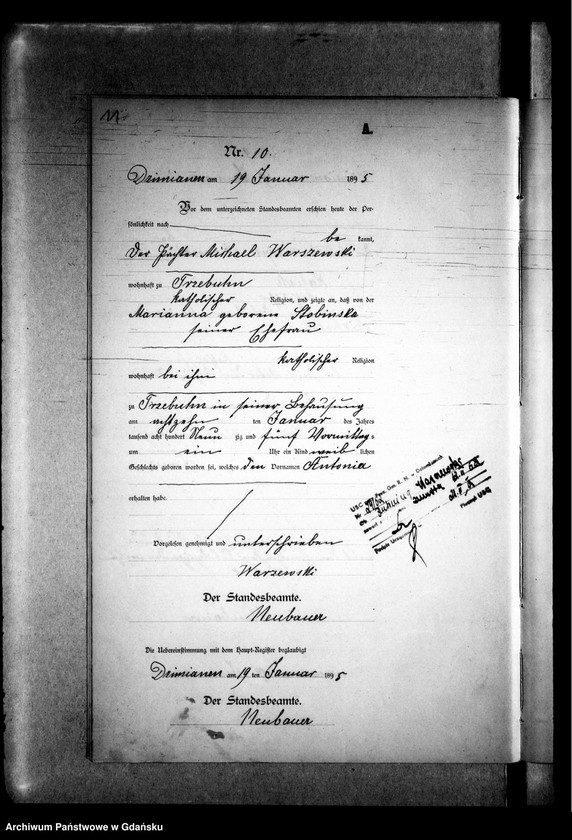 11.
A.
Nr. 10.
Dzimianen am 19 Januar 1895
Vor dem unterzeichneten Standesbeamten erschien heute der Per-
sönlichkeit nach
be kannt,
der Pächter Michael Warszewski
wohnhaft zu Trzebuhn
katholischer Religion, und zeigte an, daß von der
Marianna geborene Stobinska
seiner Ehefrau
katholischer Religion
wohnhaft bei ihm
zu Trzebuhn in seiner Behausung
am achtzehn ten Januar des Jahres
tausend acht hundert Neun zig und fünf Vormittag s
um ein Uhr ein Kind weib lichen
Geschlechts geboren worden sei, welches den Vornamen Antonia
erhalten habe.
Vorgelesen genehmigt und unterschrieben
Warzewski
Der Standesbeamte.
Neubauer
Die Uebereinstimmung mit dem Haupt-Register beglaubigt
Dzimianen am 19 ten Januar 1895
Der Standesbeamte.
Neubauer
USC
Nr
Archiwum Państwowe w Gdańsku